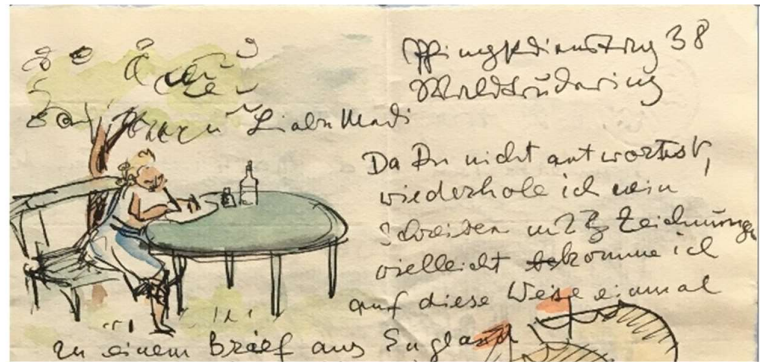 Pfingstdienstag 38
Waldtrudering
Liebe Madi
Da Du nicht antwortest,
wiederhole ich mein
Schreiben Zeichnungen
vielleicht komme ich
auf diese Weise einmal
zu einem Brief aus England